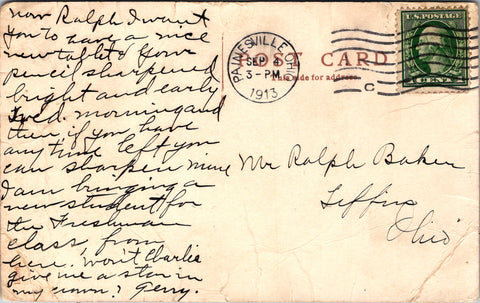 now Ralph I want
you to have a nice
new tablet & your
pencil sharpened
bright and early
Wed. morning and
then if you have
any time left you
can sharpen mine
I am bringing a
new student for
the Freshman
class, from
here. Won't Charlie
give me a star in
my crown? Gerry.
POST CARD
This side for address.
PAINESVILLE, OH
SEP
3-PM
1913
C
U.S. POSTAGE
1 CENT 1
Mr Ralph Baker
Tiffin
Ohio